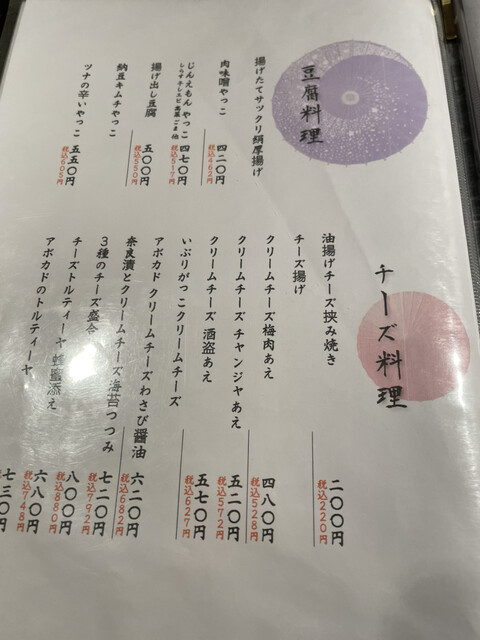 豆腐料理
揚げたてサックリ絹厚揚げ
肉味噌やっこ
四二〇円
税込462円
じんえもんやっこ
しらす干しエビ 高菜ごま 他
四七〇円
税込517円
揚げ出し豆腐
五〇〇円
税込550円
納豆キムチやっこ
ツナの辛いやっこ
五五〇円
税込605円
チーズ料理
油揚げチーズ挟み焼き
二〇〇円
税込220円
チーズ揚げ
クリームチーズ梅肉あえ
四八〇円
税込528円
クリームチーズチャンジャあえ
五二〇円
税込572円
クリームチーズ酒盗あえ
五七〇円
税込627円
いぶりがっこクリームチーズ
アボカドクリームチーズわさび醤油
六二〇円
税込682円
奈良漬とクリームチーズ海苔つつみ
七二〇円
税込792円
3種のチーズ盛合
八〇〇円
税込880円
チーズトルティーヤ 蜂蜜添え
六八〇円
税込748円
アボカドのトルティーヤ
七三〇円